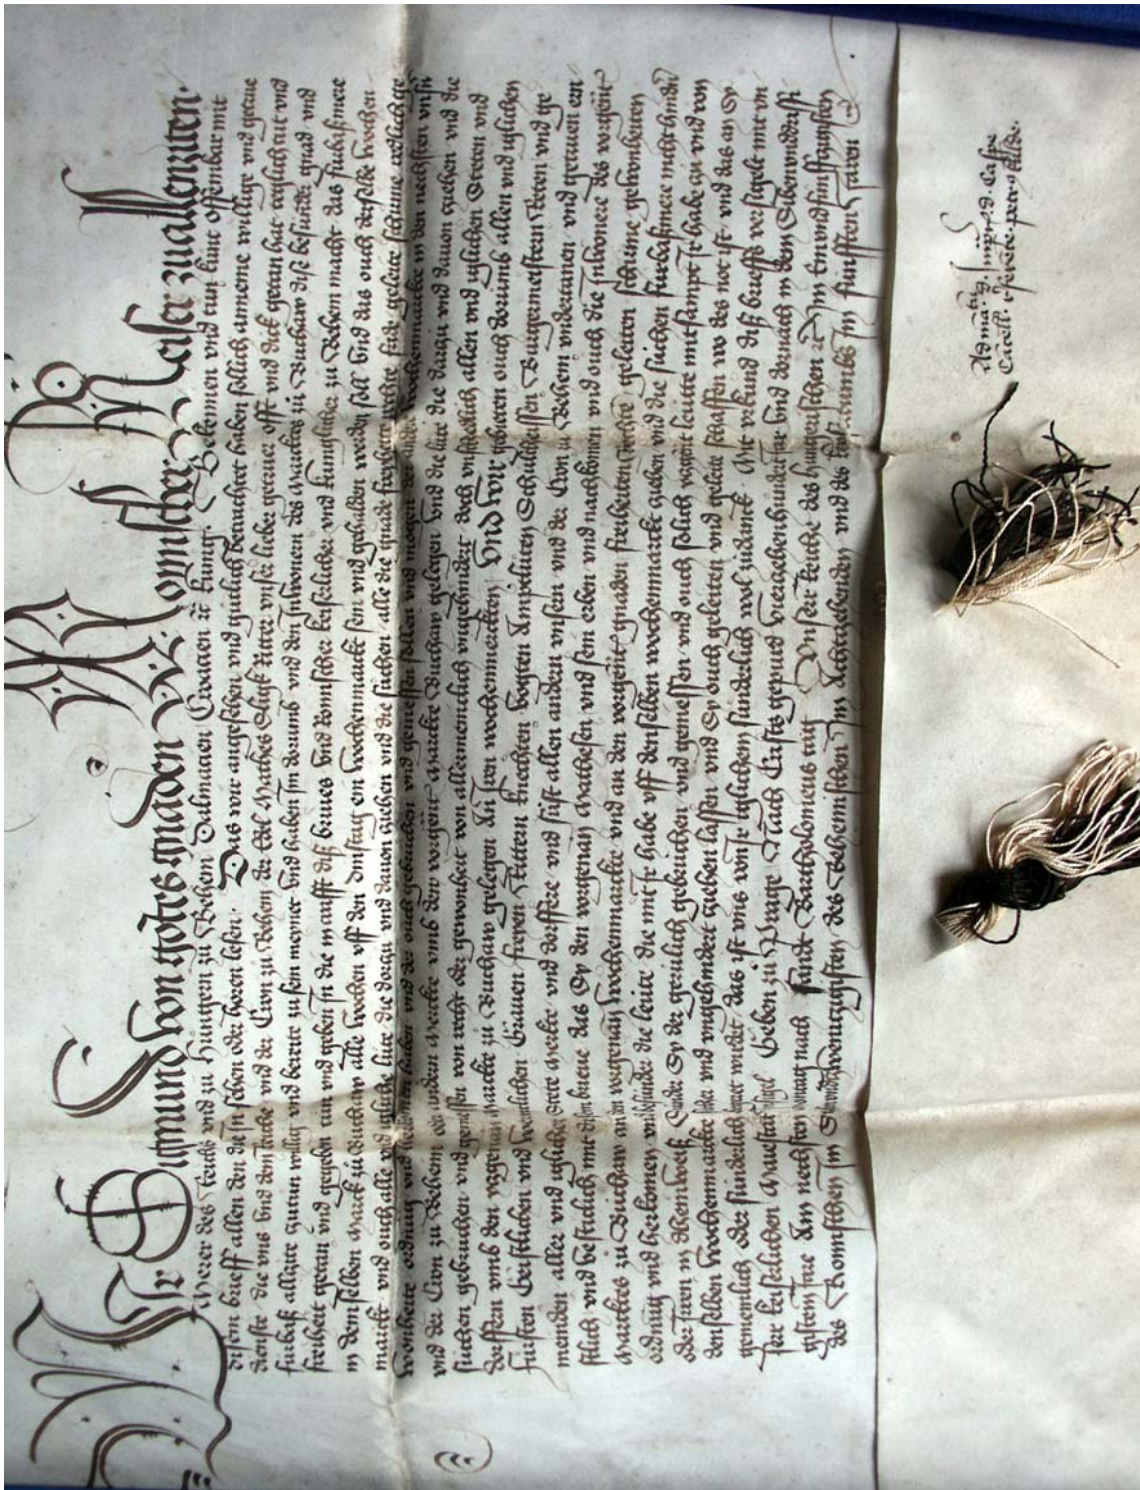 Wir Sigmund von gottes gnaden Romischer Keiser zuallenziten
Merer des Reichs und zu Hungern zu Behem Dalmacien Croacien ꝛc kunig Bekennen und tun kunt offembar mit
disem brieff allen den die In sehen oder horen lesen Das wir angesehen und gutlich betrachtet haben sollich anneme willige und getrue
dienste die uns und dem Reiche und der Cron zu Behem der Edel Mathes Slik Ritter unser lieber getruer offt und dick getan hat teglich tut und
furbaß allzite zutun willig und bereit zu sein meynet und haben Im dorumb und den Inwonern des Marktes zu Buchaw dise besunder gnad und
freiheit getan und gegeben tun und geben In die in crafft diß brieves und Romischer keiserlicher und kuniglicher zu Behem macht das furbaß mere
in demselben Markt zu Buchaw alle wochen uff den dinstag ein wochenmarckt sein und gehalden werden sol und das ouch derselbe wochen
marckt und ouch alle und igliche lute die dorczu und dauon cziehen und die suchen alle die gnade freyheit rechte fride geleite schirme redliche ge
wonheite ordnung und herkomen haben und der ouch gebruchen und geniessen sollen und mogen der ander wochenmarckte in den nechsten unsn
und der Cron zu Behem ein andern Merckte umb den vorgenanten Marckte Buchaw gelegen und die lute die darczu und dauon cziehen und die
suchen gebruchen und geniessen von recht oder gewonheit von allermeniclich ungehindert doch unschedlich allen und iglichen Steten und
dorffern umb den vorgenanten Marckte zu Buchaw gelegen an iren wochenmerckten Und wir gebieten ouch dorumb allen und iglichen
fursten Geistlichen und werntlichen Grauen freyen Rittern knechten vogten Amptluten Schultheissen Burgermeistern Reten und ge
meinden aller und iglicher Stete Merckte und dorffere und sust allen andern unsern und der Cron zu Behem undertanen und getruen ern
stlich und vesticlich mit disem brieue das Sy den vorgenanten Mathesen und sein erben und nachkomen und ouch die Inwonere des vorgenanten
Marcktes zu Buchaw an dem vorgenanten wochenmarckte und an den vorgenanten gnaden freiheiten rechten geleiten schirme gewonheiten
ordnung und herkomen und besunder die leute die mit Ir habe uff denselben wochenmarckt cziehen und die suchen furbaßmere nicht hindern
oder Irren in dhein weiß Sunder Sy der gerulich gebruchen und geniessen und ouch solich vorgenanten leute mitsampt Ir habe zu und von
denselben wochenmarckte sicher und ungehindert cziehen lassen und Sy ouch geleiten und geleite schaffen wo des not ist und das an Sy
gemeinlich oder sunderlich gemutet wirdet das ist uns von Ir iglichem sunderlich wol zudanck Mit urkund diß brieffs versigelt mit un
ser keiserlichen Maiestat Insigel Geben zu Prage Nach Crists gepurd vierczehenhundert Jar und dornach in dem Sibenunddrissi
gistem Jare Am nechsten Montag nach sandt Bartholomeus tag Unserr Reiche des hungrischen ꝛc Im Einundfunffczigisten
des Romischen Im Sibenundczwenczigisten des Behemischen Im Achtczehenden und des keisertumbs Im funfften Jaren
Ad mandatum d. Impris d. Caspe